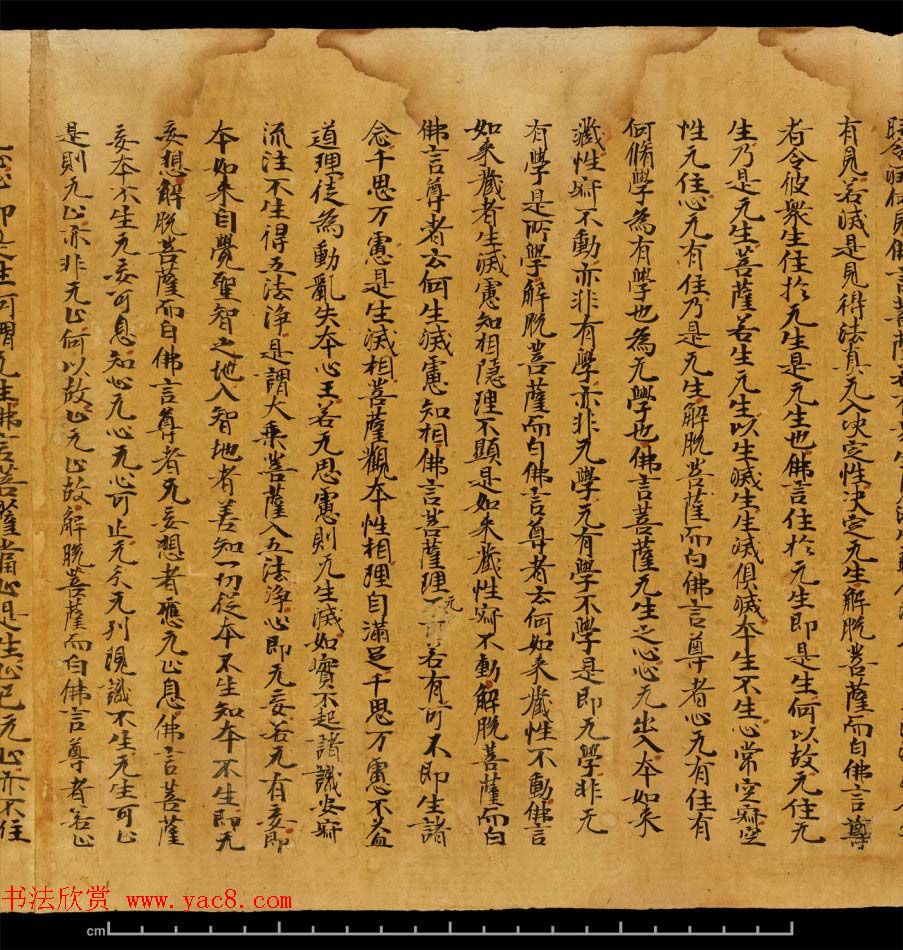 有見若滅是見得法真无入决定性决定无生解脱菩薩而白佛言尊
者令彼衆生住於无生是无生也佛言住於无生即是生何以故无住无
生乃是无生菩薩若生无生以生滅生生滅俱滅本生不生心常空寂空
性无住心无有住乃是无生解脱菩薩而白佛言尊者心无有住有
何脩學為有學也為无學也佛言菩薩无生之心心无出入本如来
藏性寂不動亦非有學亦非无學无有學不學是即无學非无
有學是所學解脱菩薩而白佛言尊者云何如来藏性不動佛言
如来藏者生滅慮知相隱理不顯是如来藏性寂不動解脱菩薩而白
佛言尊者云何生滅慮知相佛言菩薩理无可不若有可不即生諸
念千思万慮是生滅相菩薩觀本性相理自滿足千思万慮不益
道理徒為動亂失本心王若无思慮則无生滅如實不起諸識安寂
流注不生得五法淨是謂大乘菩薩入五法淨心即无妄若无有妄即
本如来自覺聖智之地入智地者善知一切從本不生知本不生即无
妄想解脱菩薩而白佛言尊者无妄想者應无止息佛言菩薩
妄本不生无妄可息知心无心无心可止无分无別現識不生无生可止
是則无止亦非无止何以故止无止故解脱菩薩而白佛言尊者若止
即是生何謂无生佛言菩薩當止是生止已无止亦不住
书法欣赏 www.yac8.com
cm